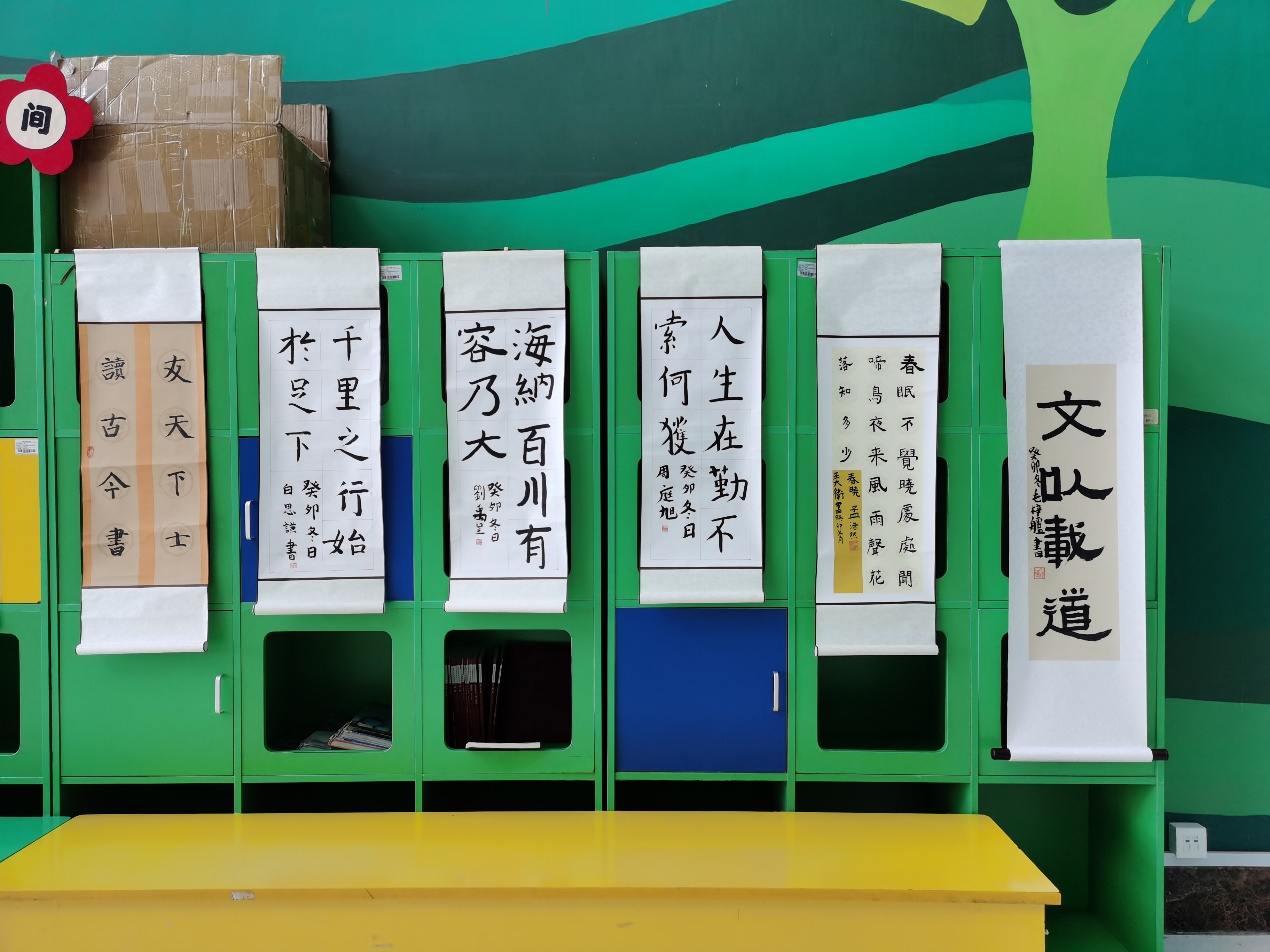 间
友天下士
讀古今書
千里之行始
於足下
癸卯冬日
白思書
海納百川有
容乃大
癸卯冬日
劉禹呈
人生在勤不
索何獲
癸卯冬日
周庭旭
春眠不覺曉處處聞
啼鳥夜来風雨聲花
落知多少
春曉 孟浩然
文以載道
癸卯冬書